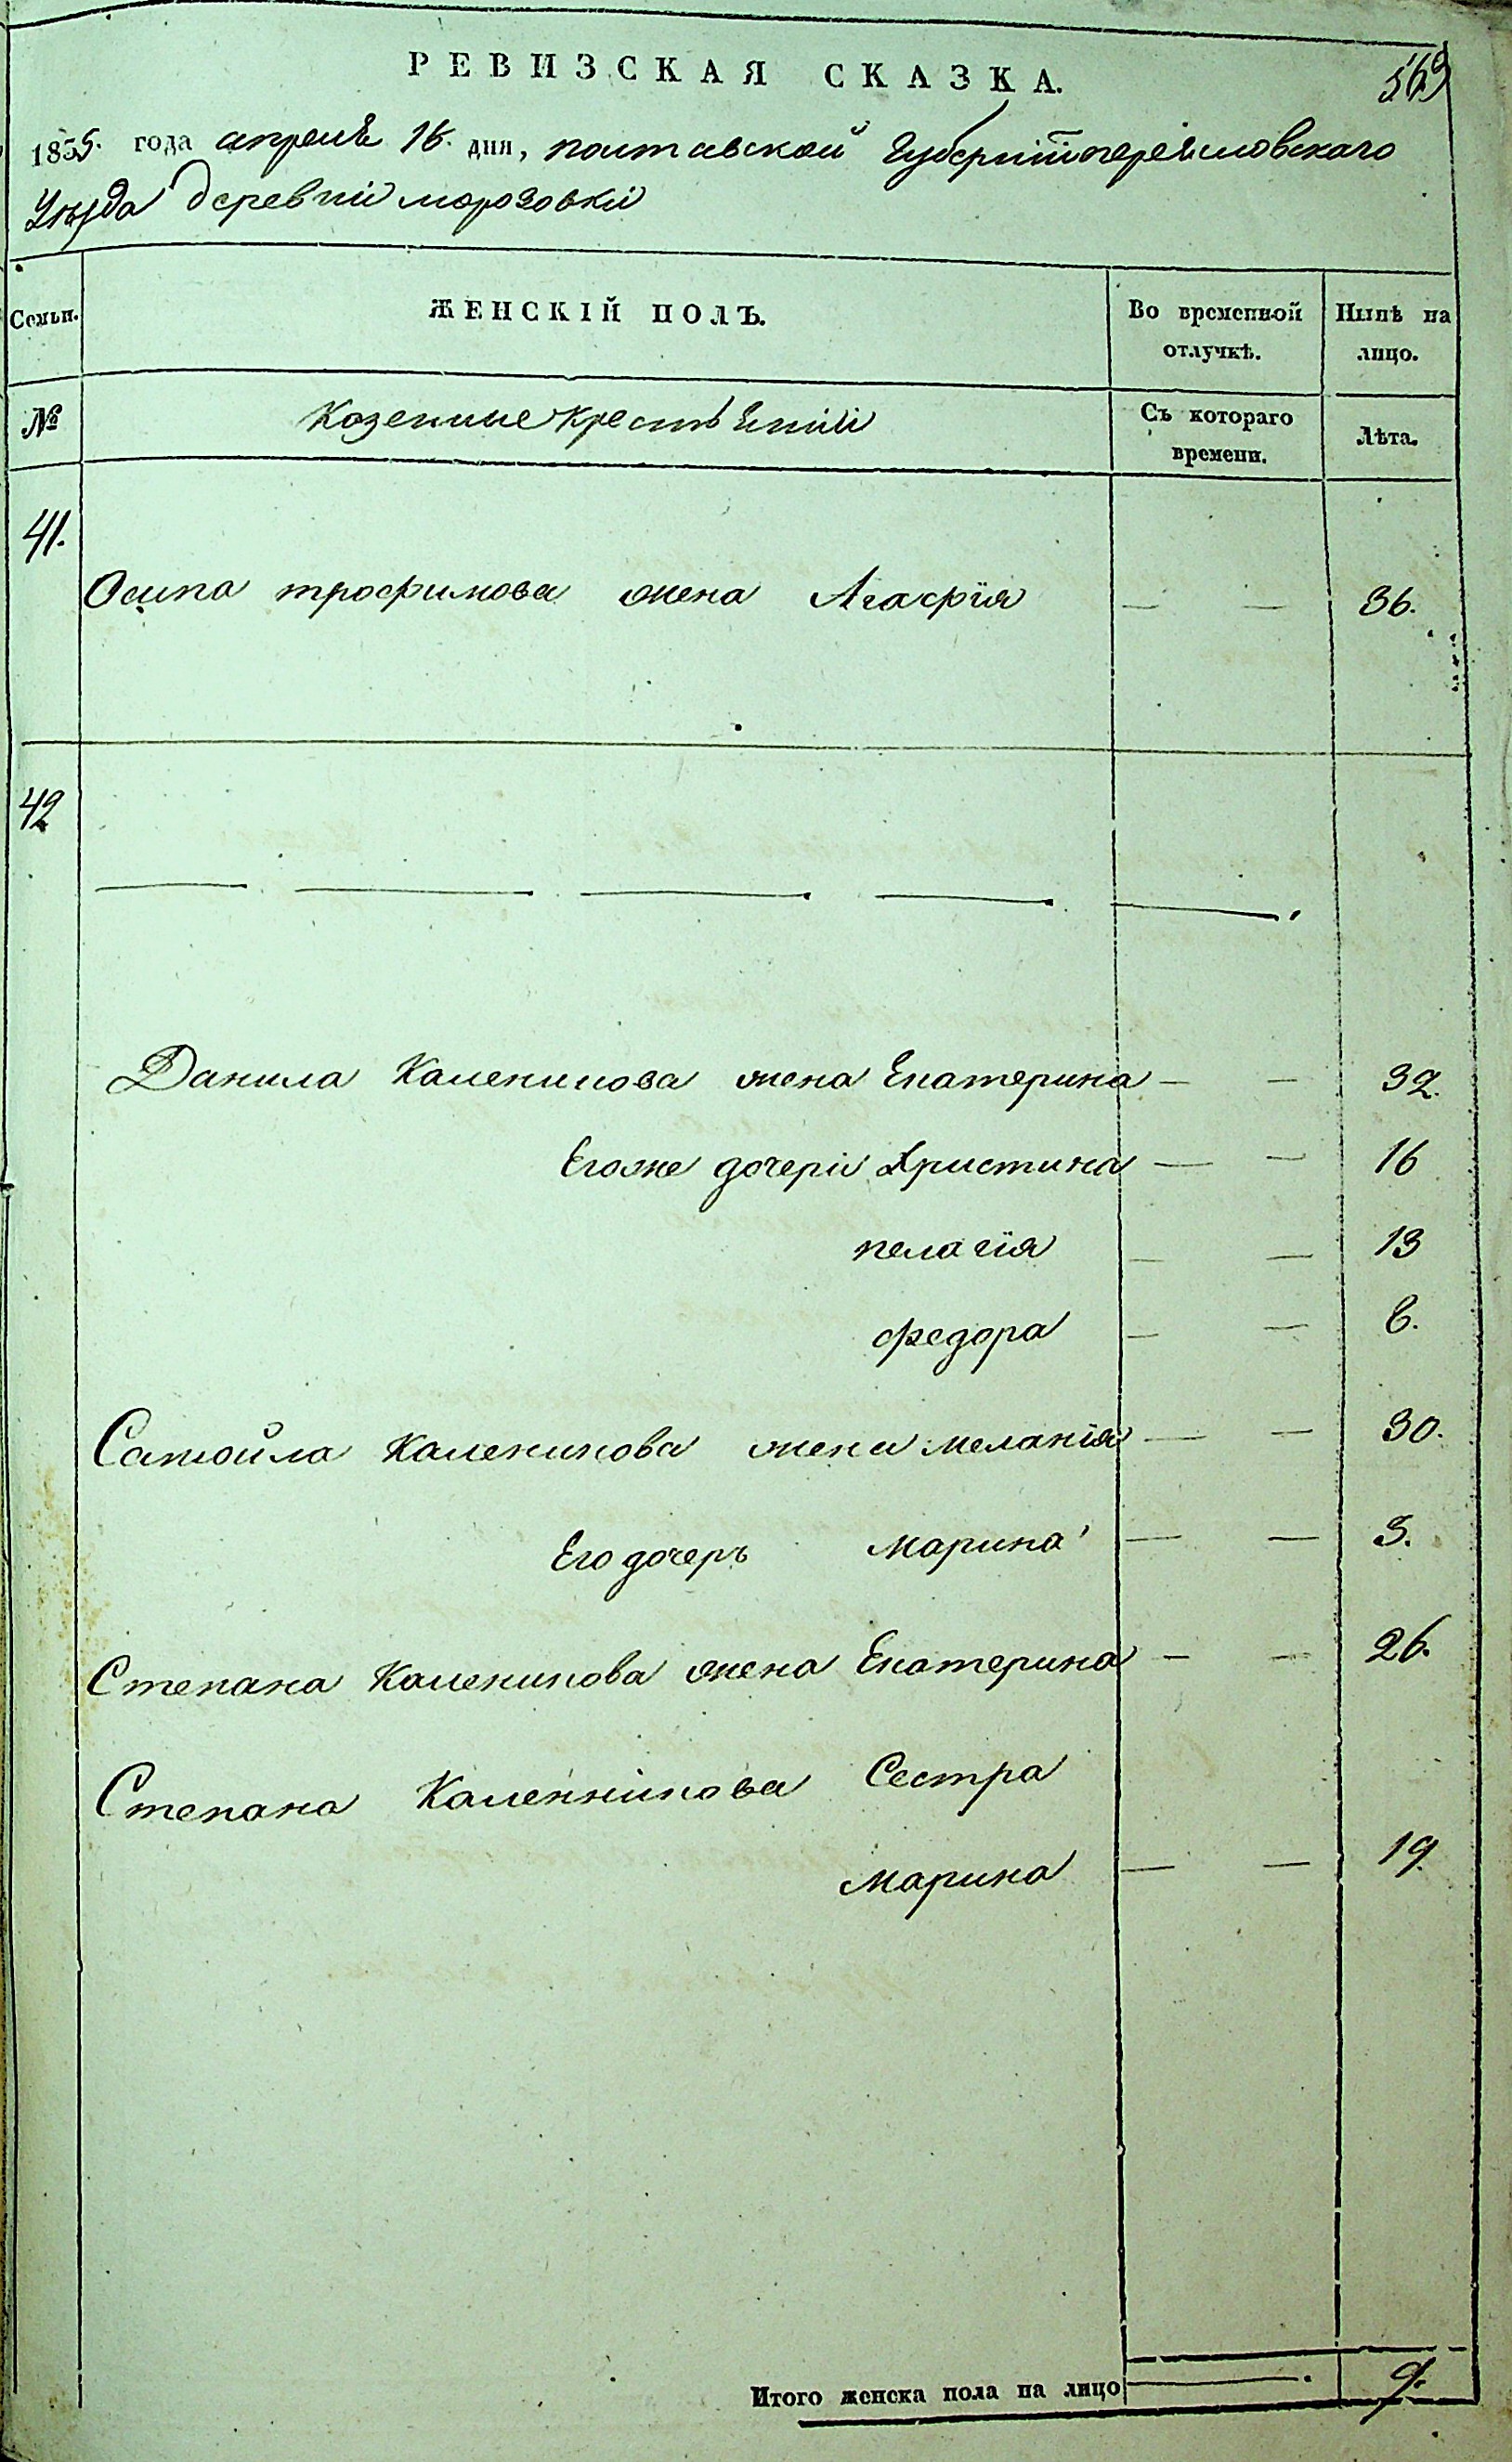 РЕВИЗСКАЯ СКАЗКА.
569
1835. года апреля 16. дня, полтавской Губерний переяяловскаго
Уезда деревний морозовкй
Семьи. ЖЕНСКІЙ ПОЛЪ. Во временной отлучкѣ. Нынѣ на лицо.
№ Козенные крестьяний Съ котораго времени. Лѣта.
41.
Осипа трофимова жена Агафїя — — 36.
42
Данила Каленикова жена Екатерина — — 32.
Егоже дочери Христина — — 16
пелагїя — — 13
федора — — 6.
Самойла Каленикова жена меланїя — — 30.
Его дочеръ Марина — — 3.
Степана Каленикова жена Екатерина — — 26.
Степана Каленникова Сестра
марина — — 19.
Итого женска пола на лицо — 9.